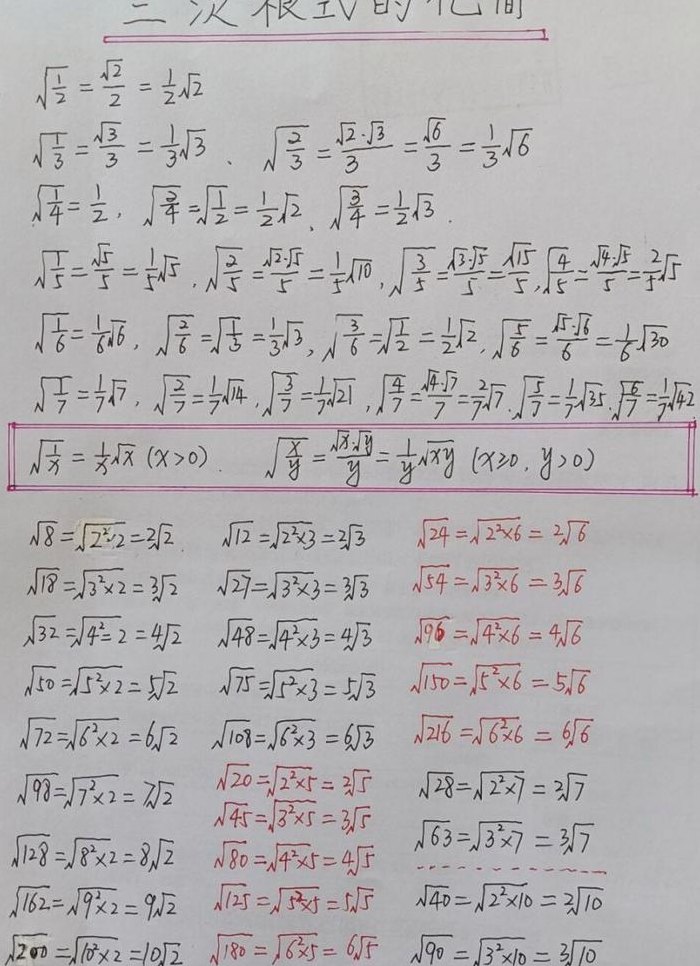 二次根式的化简
√(1/2) = √2/2 = 1/2√2
√(1/3) = √3/3 = 1/3√3 、 √(2/3) = √2·√3/3 = √6/3 = 1/3√6
√(1/4) = 1/2 , √(2/4) = √(1/2) = 1/2√2 、 √(3/4) = 1/2√3 .
√(1/5) = √5/5 = 1/5√5 , √(2/5) = √2·√5/5 = 1/5√10 , √(3/5) = √3·√5/5 = √15/5 , √(4/5) = √4·√5/5 = 2/5√5
√(1/6) = 1/6√6 , √(2/6) = √(1/3) = 1/3√3 , √(3/6) = √(1/2) = 1/2√2 , √(5/6) = √5·√6/6 = 1/6√30
√(1/7) = 1/7√7 , √(2/7) = 1/7√14 , √(3/7) = 1/7√21 , √(4/7) = √4·√7/7 = 2/7√7 . √(5/7) = 1/7√35 . √(6/7) = 1/7√42
√(1/x) = 1/x√x (x>0) . √(x/y) = √x·√y/y = 1/y√xy (x≥0, y>0)
√8 = √2²×2 = 2√2 . √12 = √2²×3 = 2√3 √24 = √2²×6 = 2√6
√18 = √3²×2 = 3√2 √27 = √3²×3 = 3√3 √54 = √3²×6 = 3√6
√32 = √4²=2 = 4√2 √48 = √4²×3 = 4√3 √96 = √4²×6 = 4√6
√50 = √5²×2 = 5√2 √75 = √5²×3 = 5√3 √150 = √5²×6 = 5√6
√72 = √6²×2 = 6√2 √108 = √6²×3 = 6√3 √216 = √6²×6 = 6√6
√98 = √7²×2 = 7√2 √20 = √2²×5 = 2√5 √28 = √2²×7 = 2√7
√45 = √3²×5 = 3√5 √63 = √3²×7 = 3√7
√128 = √8²×2 = 8√2 √80 = √4²×5 = 4√5
√162 = √9²×2 = 9√2 √125 = √5²×5 = 5√5 √40 = √2²×10 = 2√10
√200 = √10²×2 = 10√2 √180 = √6²×5 = 6√5 √90 = √3²×10 = 3√10